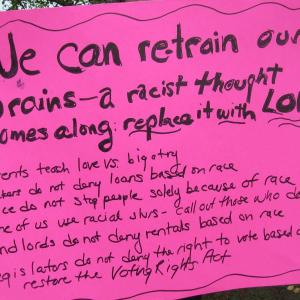 We can retrain our
brains—a racist thought
comes along: replace it with LOVE
Parents teach love vs. bigotry
do not deny loans based on race
Police do not stop people solely because of race
of us use racial slurs - call out those who do
Landlords do not deny rentals based on race
Legislators do not deny the right to vote based
restore the Voting Rights Act